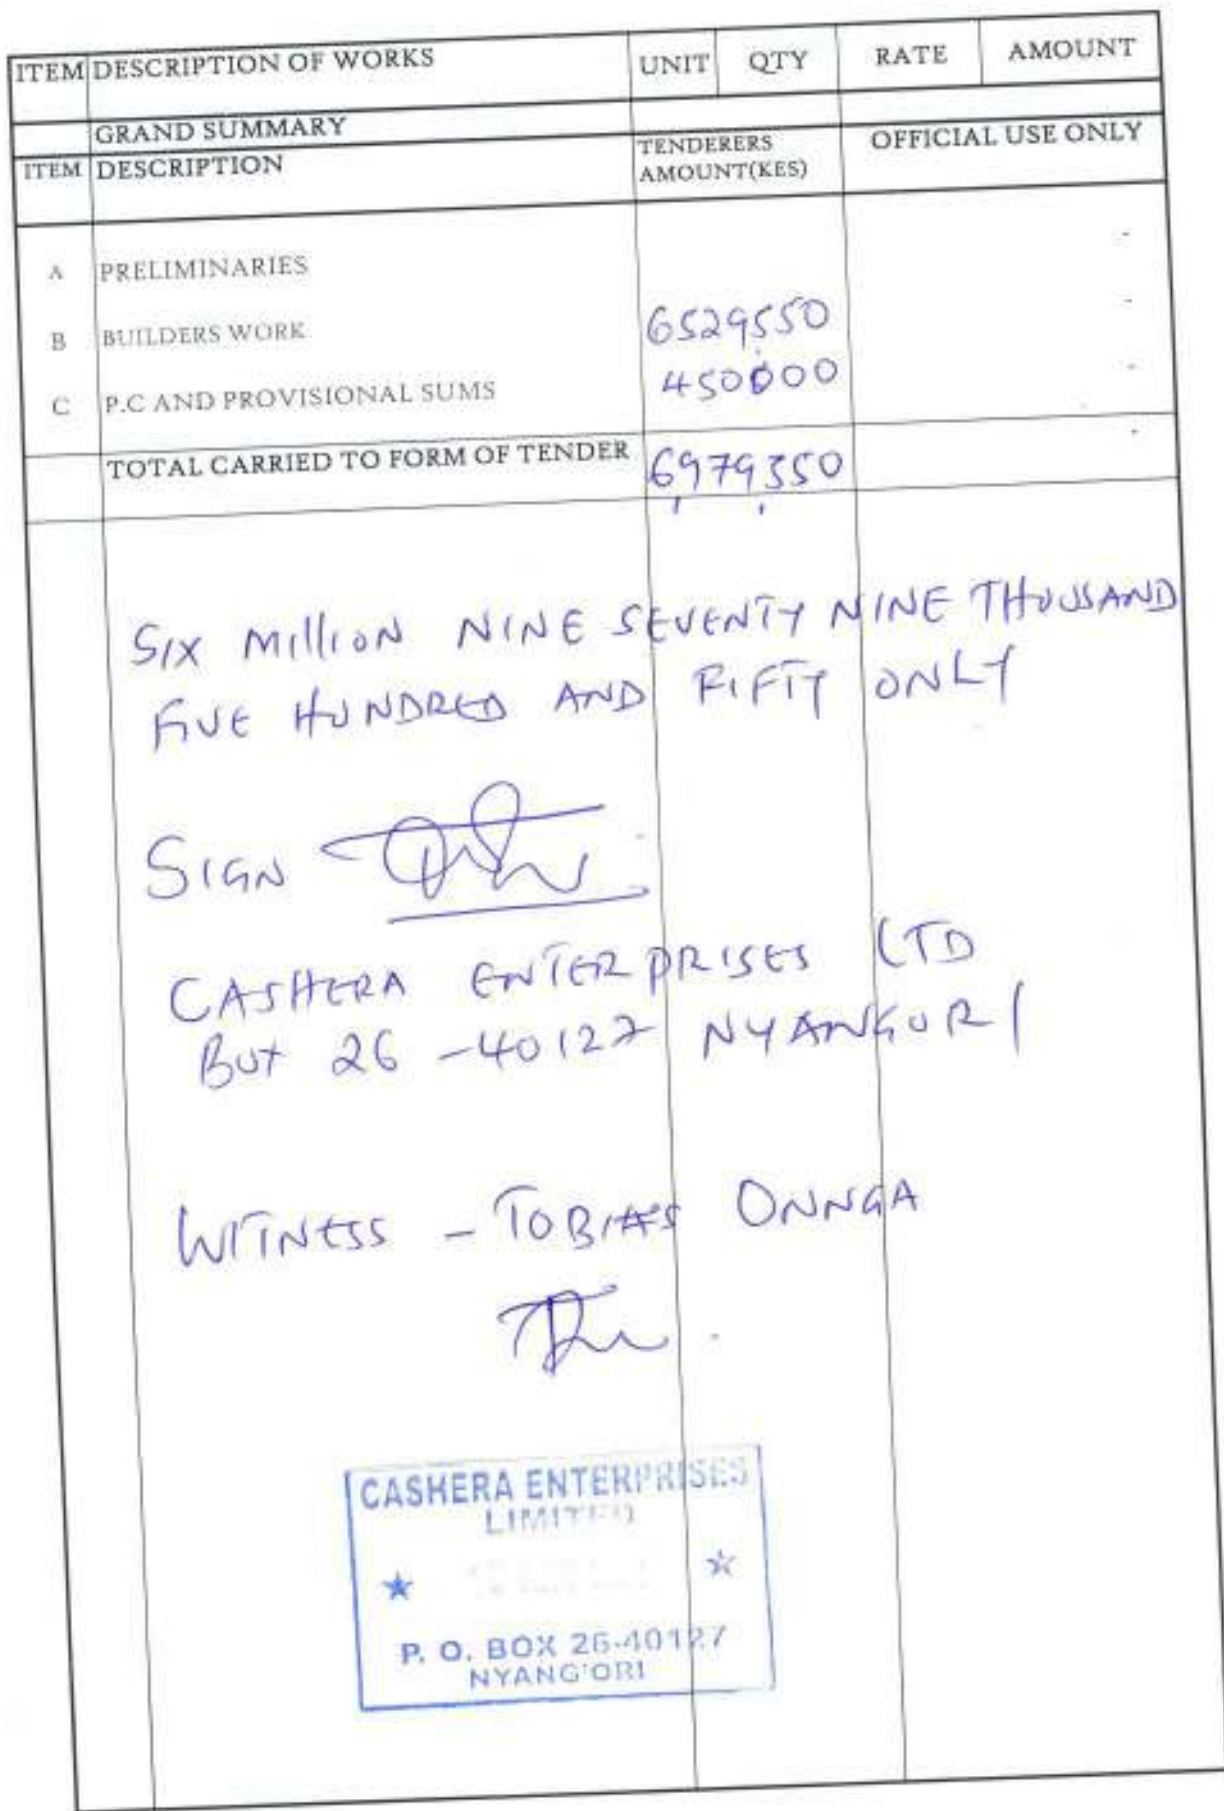 ITEM DESCRIPTION OF WORKS UNIT QTY RATE AMOUNT
GRAND SUMMARY
ITEM DESCRIPTION TENDERERS AMOUNT(KES) OFFICIAL USE ONLY
A PRELIMINARIES -
B BUILDERS WORK 6529550 -
C P.C AND PROVISIONAL SUMS 450000 -
TOTAL CARRIED TO FORM OF TENDER 6979350 -
SIX MILLION NINE SEVENTY NINE THOUSAND
FIVE HUNDRED AND FIFTY ONLY
SIGN
CASHERA ENTERPRISES LTD
BOX 26 -40127 NYANGORI
WITNESS - TOBIAS ONNGA
CASHERA ENTERPRISES
LIMITED
P. O. BOX 26-40127
NYANG'ORI